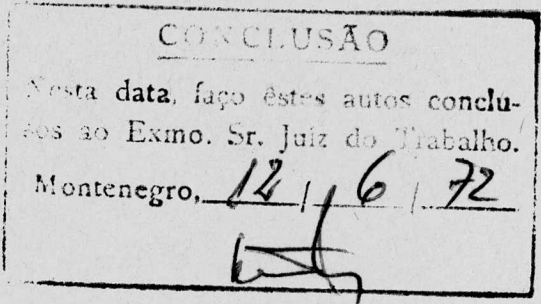 CONCLUSÃO
Nesta data, faço êstes autos conclu-
sos ao Exmo. Sr. Juiz do Trabalho.
Montenegro, 12 / 6 / 72